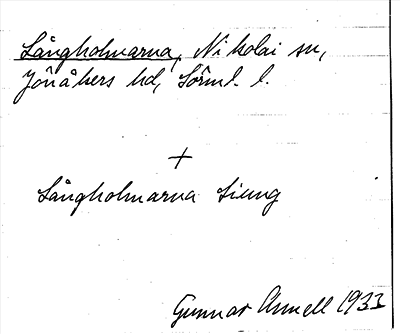 Långholmarna, Nikolai sn,
Jönåkers hd, Sörml. l.
+
Långholmarna Liung
Gunnar Annell 1933